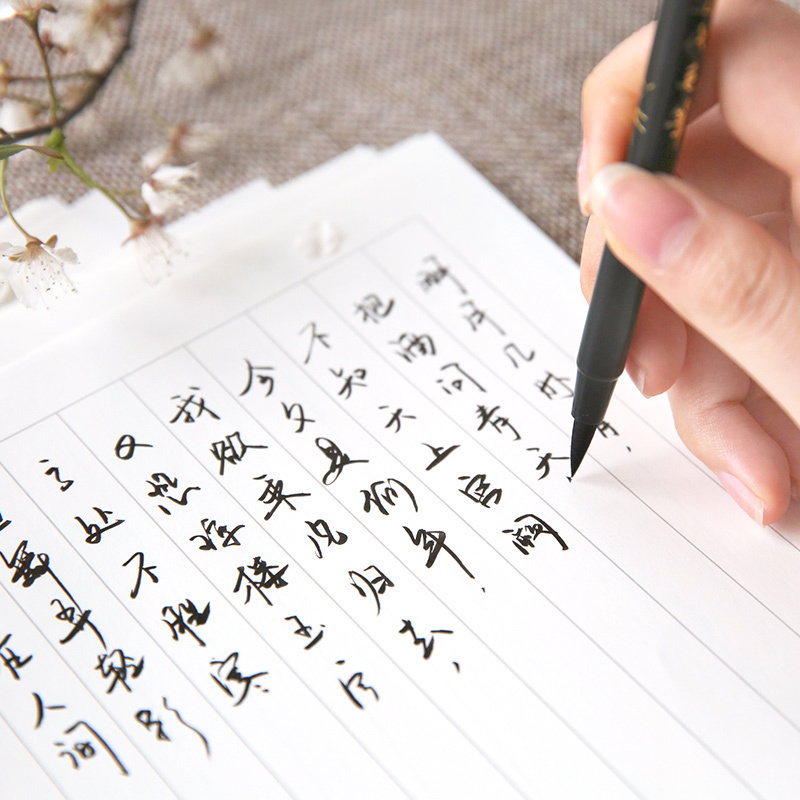 明月几时有，
把酒问青天，
不知天上宫阙
今夕是何年，
我欲乘风归去，
又恐琼楼玉宇
高处不胜寒
舞弄轻影
在人间